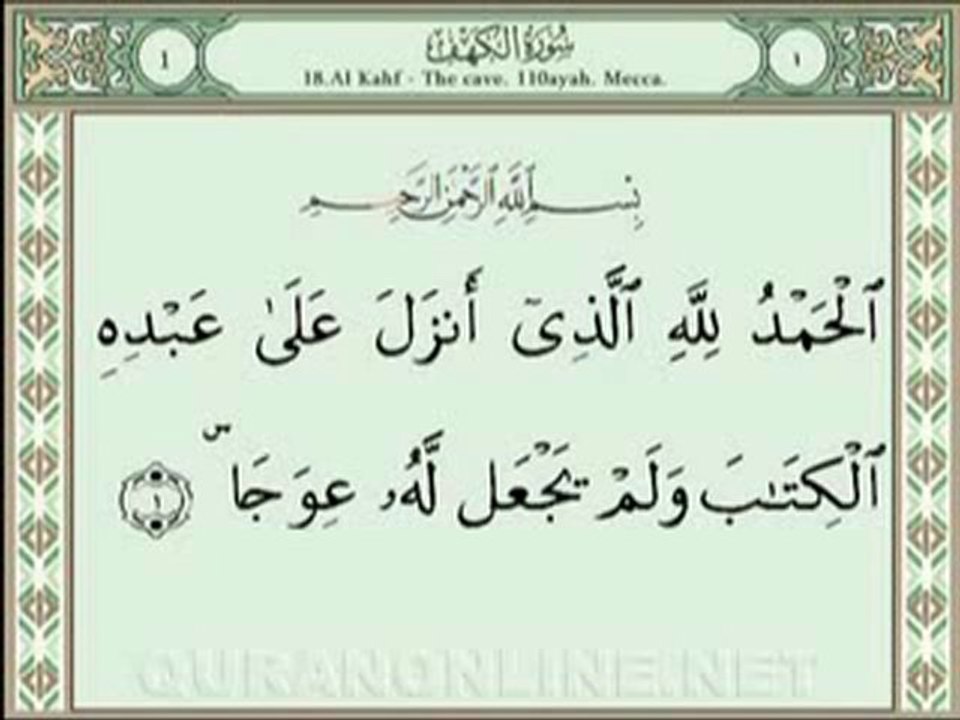 سورة الكهف
1
18.Al Kahf - The cave. 110ayah. Mecca.
١
بِسْمِ ٱللَّهِ ٱلرَّحْمَٰنِ ٱلرَّحِيمِ
ٱلْحَمْدُ لِلَّهِ ٱلَّذِىٓ أَنزَلَ عَلَىٰ عَبْدِهِ
ٱلْكِتَـٰبَ وَلَمْ يَجْعَل لَّهُۥ عِوَجَا ۜ ١
QURANONLINE.NET